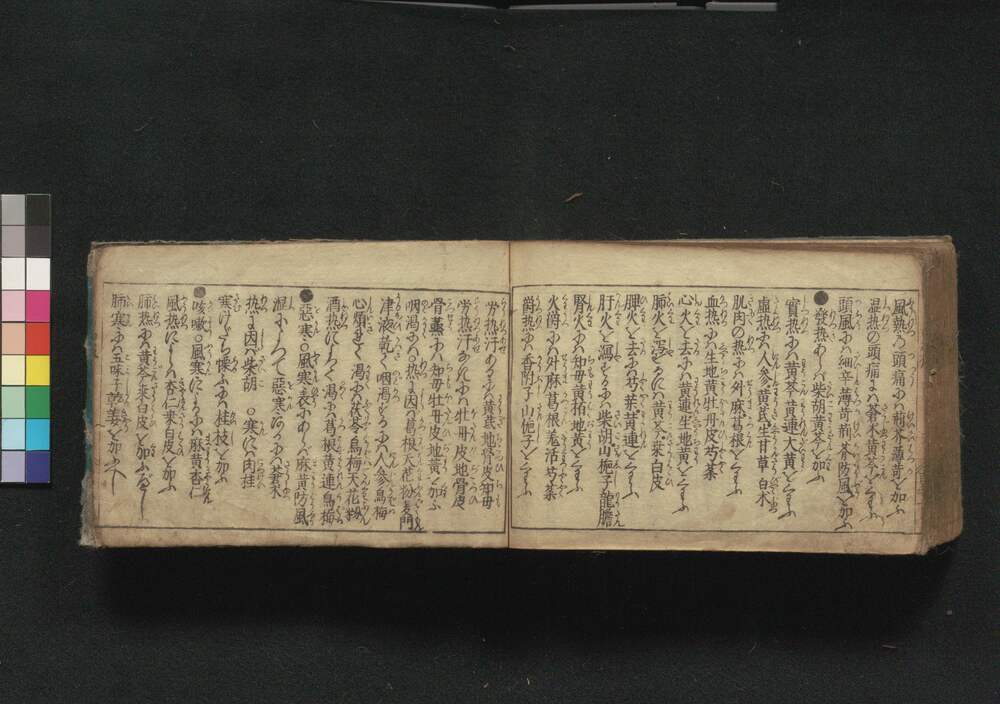 風熱乃頭痛ニハ荊芥薄荷を加ふ
湿热の頭痛ニハ蒼朮黄芩をくわふ
頭風ニハ細辛薄荷荊芥防風を加ふ
●發热あらバ柴胡黄芩を加ふ
實热ニハ黄芩黄連大黄をくわふ
虚热ニハ人参黄芪生甘草白朮
肌肉の热ニハ升麻葛根をくわふ
血热ニハ生地黄牡丹皮芍薬
心火を去ニハ黄連生地黄をくわふ
肺火を瀉するにハ黄芩桑白皮
脾火を去ニハ芍薬黄連をくわふ
肝火を瀉するニハ柴胡山梔子龍膽
腎火ニハ知毋黄栢地黄をくわふ
火欝ニハ升麻葛根羗活芍薬
欝热ニハ香附子山梔子をくわふ
労热汗あるニハ黄芪地骨皮知毋
労热汗なきニハ牡丹皮地骨皮
骨蒸ニハ知毋牡丹皮地黄を加ふ
咽渇ニハ热に因ハ葛根天花粉麦門
津液乾き咽渇するニハ人参烏梅
心煩して渇ニハ茯苓烏梅天花粉
酒热にして渇ニハ葛根黄連烏梅
●惡寒○風寒表にあらバ麻黄防風
湿によつて惡寒するニハ蒼朮
热に因ハ柴胡○寒にハ肉桂
寒けだち慄ふにハ桂枝を加ふ
●咳嗽○風寒によるニハ麻黄杏仁
風热によらバ杏仁桑白皮を加ふ
肺热ニハ黄芩桑白皮を加ふべし
肺寒ニハ五味子乾姜を加ふべし